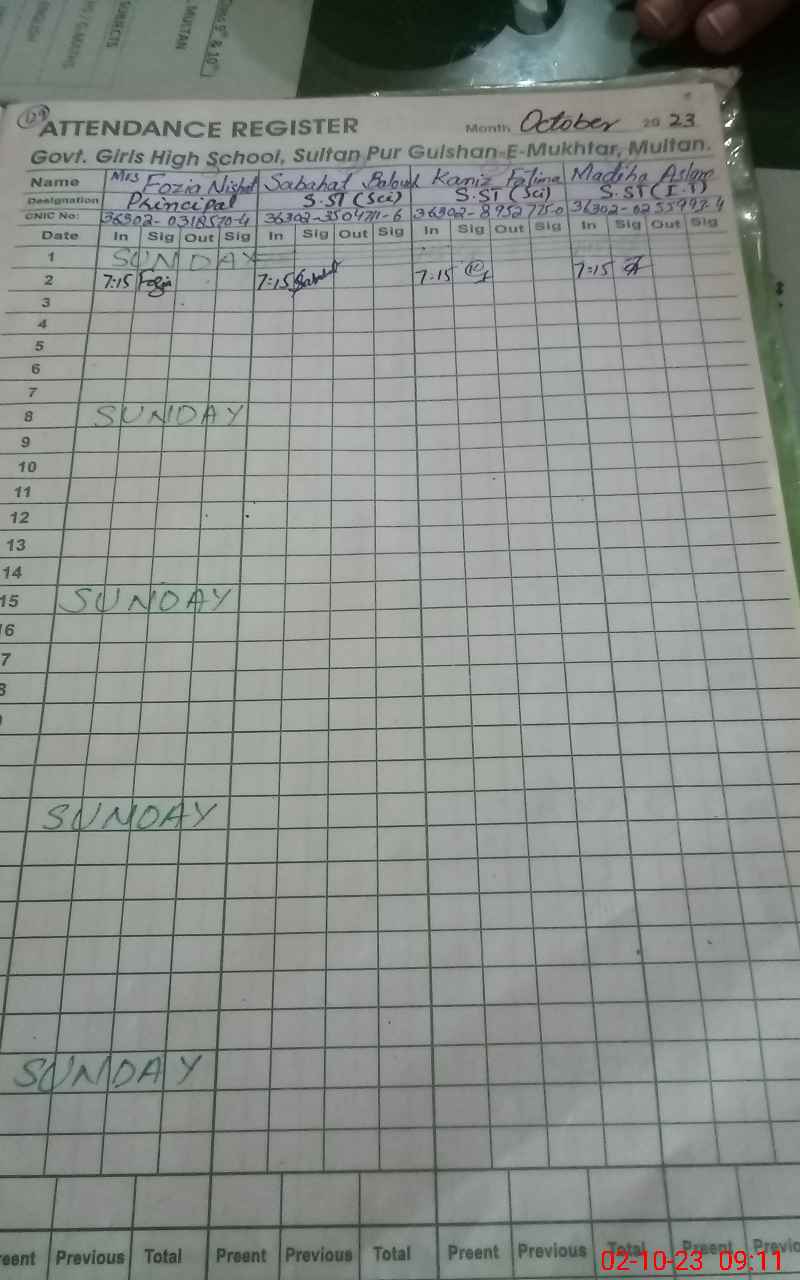 SUBJECTS
MULTAN
ENGLISH
129
ATTENDANCE REGISTER Month October 20 23
Govt. Girls High School, Sultan Pur Gulshan-E-Mukhtar, Multan.
Name Mrs Fozia Sabahat Kaniz Fatima Madiha Aslam
Designation Principal S.ST (Sci) S.ST (Sci) S.ST (I.T)
CNIC No: 36302-0318570-4 36302- 36302-8952775-0 36302-
Date In Sig Out Sig In Sig Out Sig In Sig Out Sig In Sig Out Sig
1 SUNDAY
2 7:15 Fozia 7:15 Sabahat 7:15 7:15
3
4
5
6
7
8 SUNDAY
9
10
11
12
13
14
15 SUNDAY
6
7
8
SUNDAY
SUNDAY
eent Previous Total Preent Previous Total Preent Previous Total Preent Previo
02-10-23 09:11